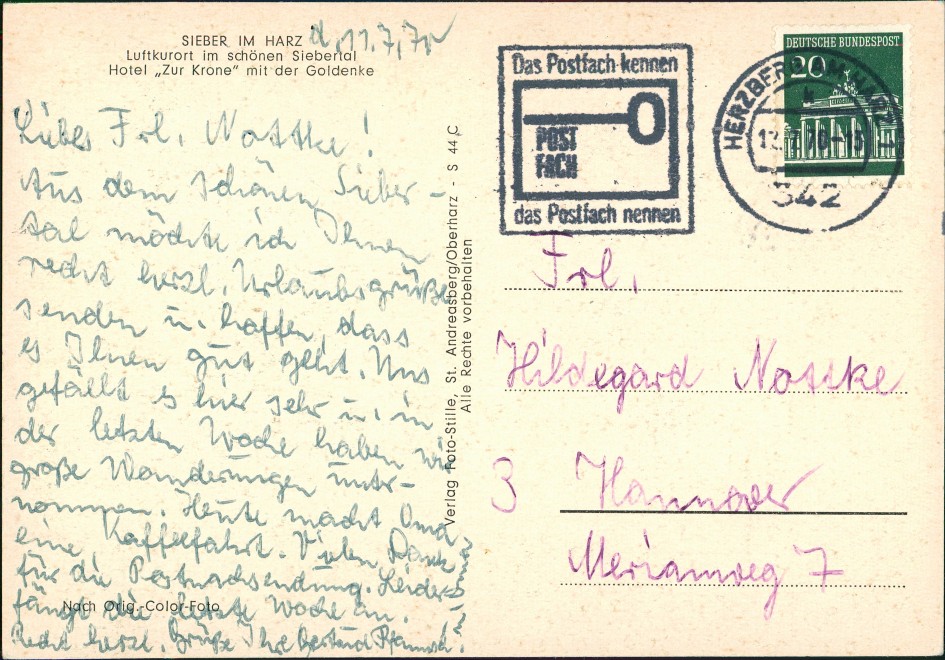 SIEBER IM HARZ
Luftkurort im schönen Siebertal
Hotel „Zur Krone“ mit der Goldenke
d. 11.7.70
Liebes Frl. Nottke!
Aus dem schönen Sieber-
tal möchte ich Ihnen
recht herzl. Urlaubsgrüße
senden u. hoffen, dass
es Ihnen gut geht. Uns
gefällt es hier sehr u. in
der letzten Woche haben wir
große Wanderungen unter-
nommen. Heute macht Oma
eine Kaffeefahrt. Vielen Dank
für die Postnachsendung. Leider
fängt die letzte Woche an.
Recht herzl. Grüße Ihre Gertrud
Nach Orig.-Color-Foto
Verlag Foto-Stille, St. Andreasberg/Oberharz - S 44 C
Alle Rechte vorbehalten
Das Postfach kennen
POST
FACH
das Postfach nennen
HERZBERG AM HARZ
k
13.7.70-15
342
DEUTSCHE BUNDESPOST
20
Frl.
Hildegard Nottke
3 Hannover
Merianweg 7